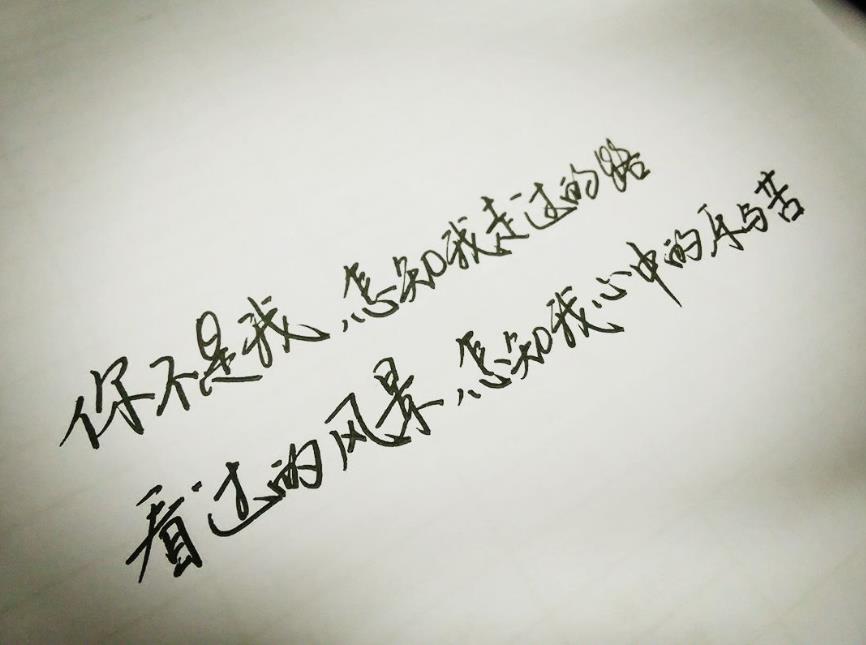 你不是我,怎知我走过的路
看过的风景,怎知我心中的乐与苦